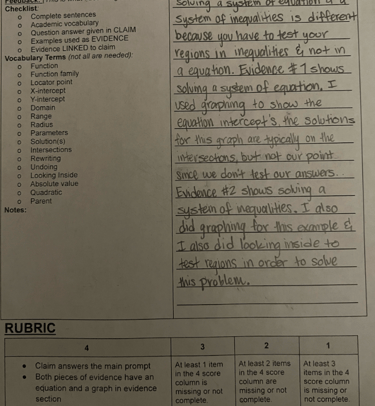 Checklist:
o Complete sentences
o Academic vocabulary
o Question answer given in CLAIM
o Examples used as EVIDENCE
o Evidence LINKED to claim
Vocabulary Terms (not all are needed):
o Function
o Function family
o Locator point
o X-intercept
o Y-intercept
o Domain
o Range
o Radius
o Parameters
o Solution(s)
o Intersections
o Rewriting
o Undoing
o Looking Inside
o Absolute value
o Quadratic
o Parent
Notes:
solving a system of equation & a
system of inequalities is different
because you have to test your
regions in inequalities & not in
a equation. Evidence #1 shows
solving a system of equation. I
used graphing to show the
equation intercept's, the solutions
for this graph are typically on the
intersections, but not our point
since we don't test our answers.
Evidence #2 shows solving a
system of inequalities. I also
did graphing for this example &
I also did looking inside to
test regions in order to solve
this problem.
RUBRIC
4 3 2 1
• Claim answers the main prompt
• Both pieces of evidence have an
equation and a graph in evidence
section
At least 1 item
in the 4 score
column is
missing or not
complete.
At least 2 items
in the 4 score
column are
missing or not
complete.
At least 3
items in the 4
score column
is missing or
not complete.